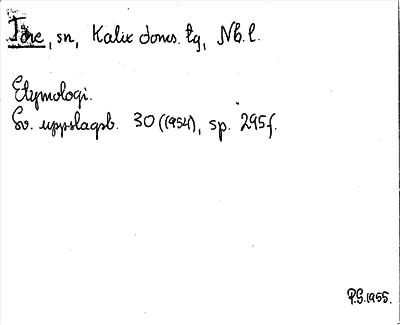 Töre, sn, Kalix doms. tg, Nb. l.
Etymologi.
Sv. uppslagsb. 30 (1954), sp. 295 f.
P.G. 1955.